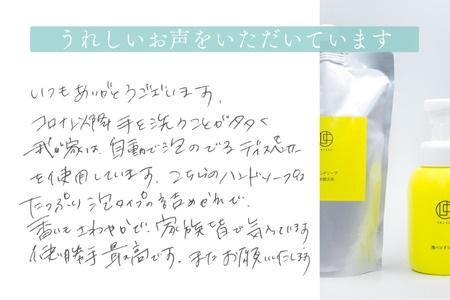 うれしいお声をいただいています
いつもありがとうございます。
コロナ以降手を洗うことが多く
我が家は、自動で泡のでるディスペンサー
を使用しています。こちらのハンドソープは
たっぷり泡タイプの詰めかえで、
香りもさわやかで、家族皆で気に入っています。
使い勝手最高です。またお願いいたします